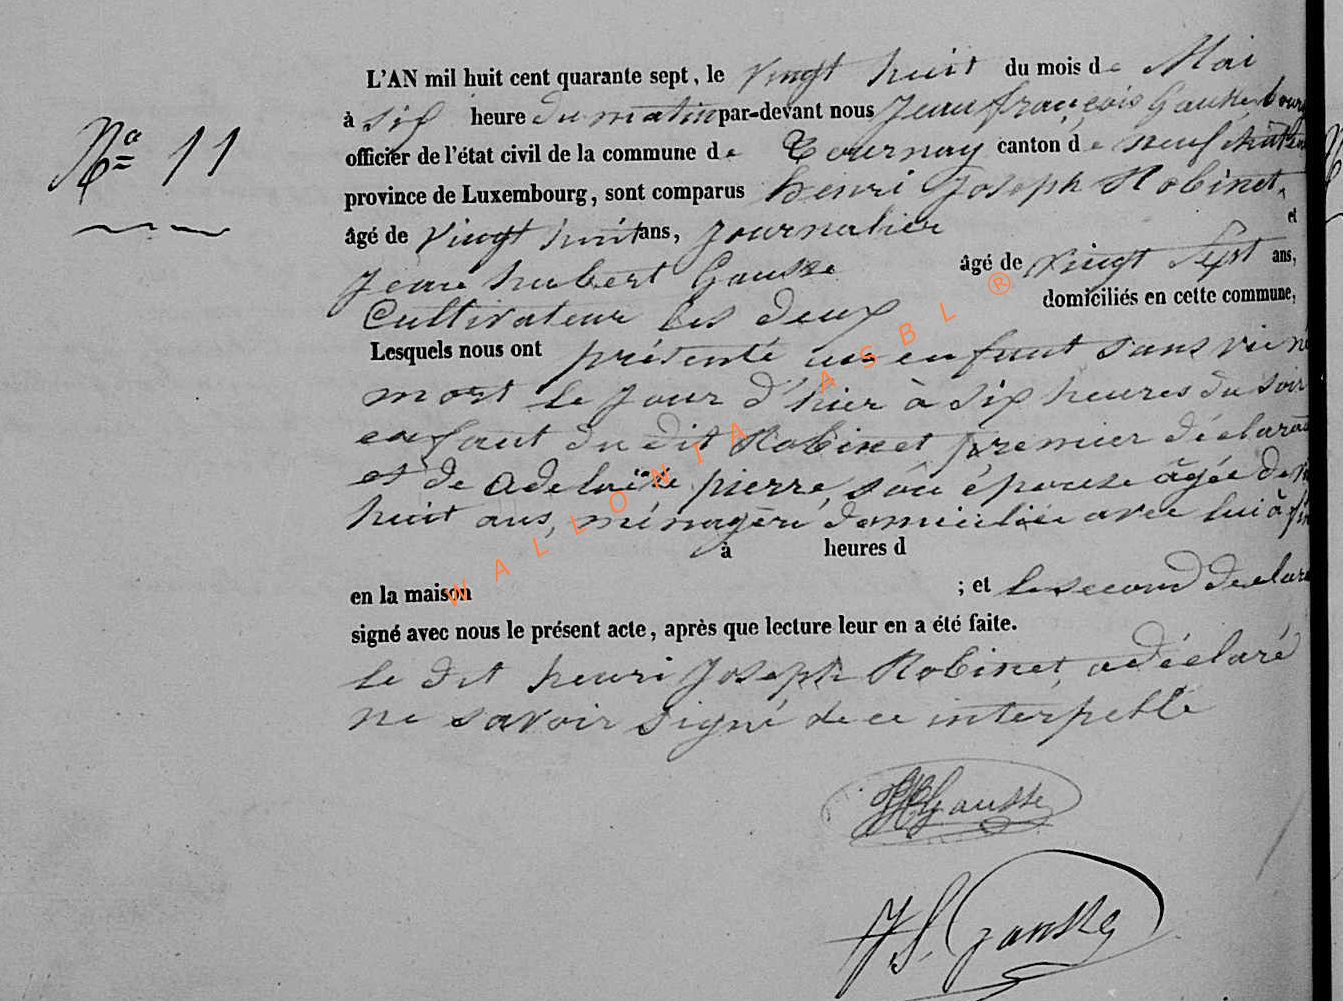 Nº 11
L'AN mil huit cent quarante sept, le vingt huit du mois de Mai
à six heure du matin par-devant nous Jean françois Gausse, bour
officier de l'état civil de la commune de Tournay canton de neufchât
province de Luxembourg, sont comparus henri Joseph Robinet,
âgé de vingt huit ans, Journalier et
Jean hubert Gausse âgé de vingt sept ans,
Cultivateur les deux domiciliés en cette commune,
Lesquels nous ont présenté un enfant sans vie né
mort le Jour d'hier à six heures du soir
enfant du dit Robinet premier déclara
et de adelaïde pierre, son épouse âgée de
huit ans, ménagère domiciliée avec lui à
à heures d
en la maison ; et le second declara
signé avec nous le présent acte, après que lecture leur en a été faite.
le dit henri Joseph Robinet, a déclaré
ne savoir signé de ce interpellé
Gausse
J. f. Gausse
WALLONIA ASBL ®